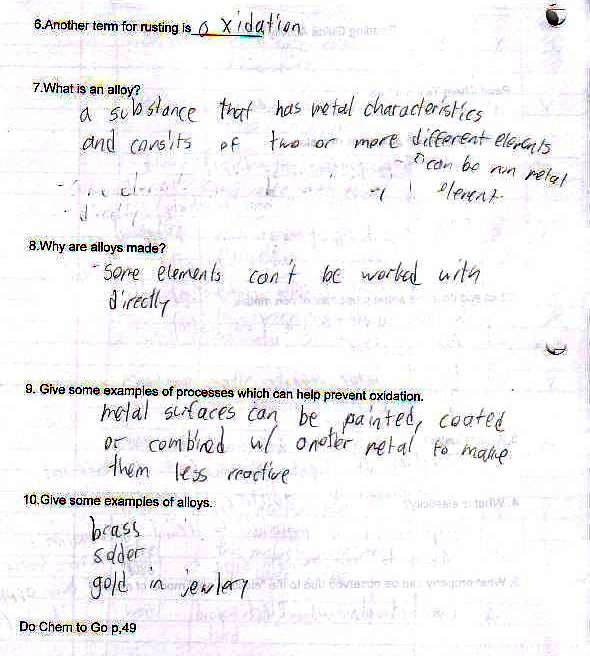 6.Another term for rusting is oxidation
7.What is an alloy?
a substance that has metal characteristics
and consits of two or more different elements
- can be non metal
element
8.Why are alloys made?
- Some elements can't be worked with
directly
9. Give some examples of processes which can help prevent oxidation.
metal surfaces can be painted, coated
or combined w/ another metal to make
them less reactive
10.Give some examples of alloys.
brass
solder
gold in jewlery
Do Chem to Go p.49